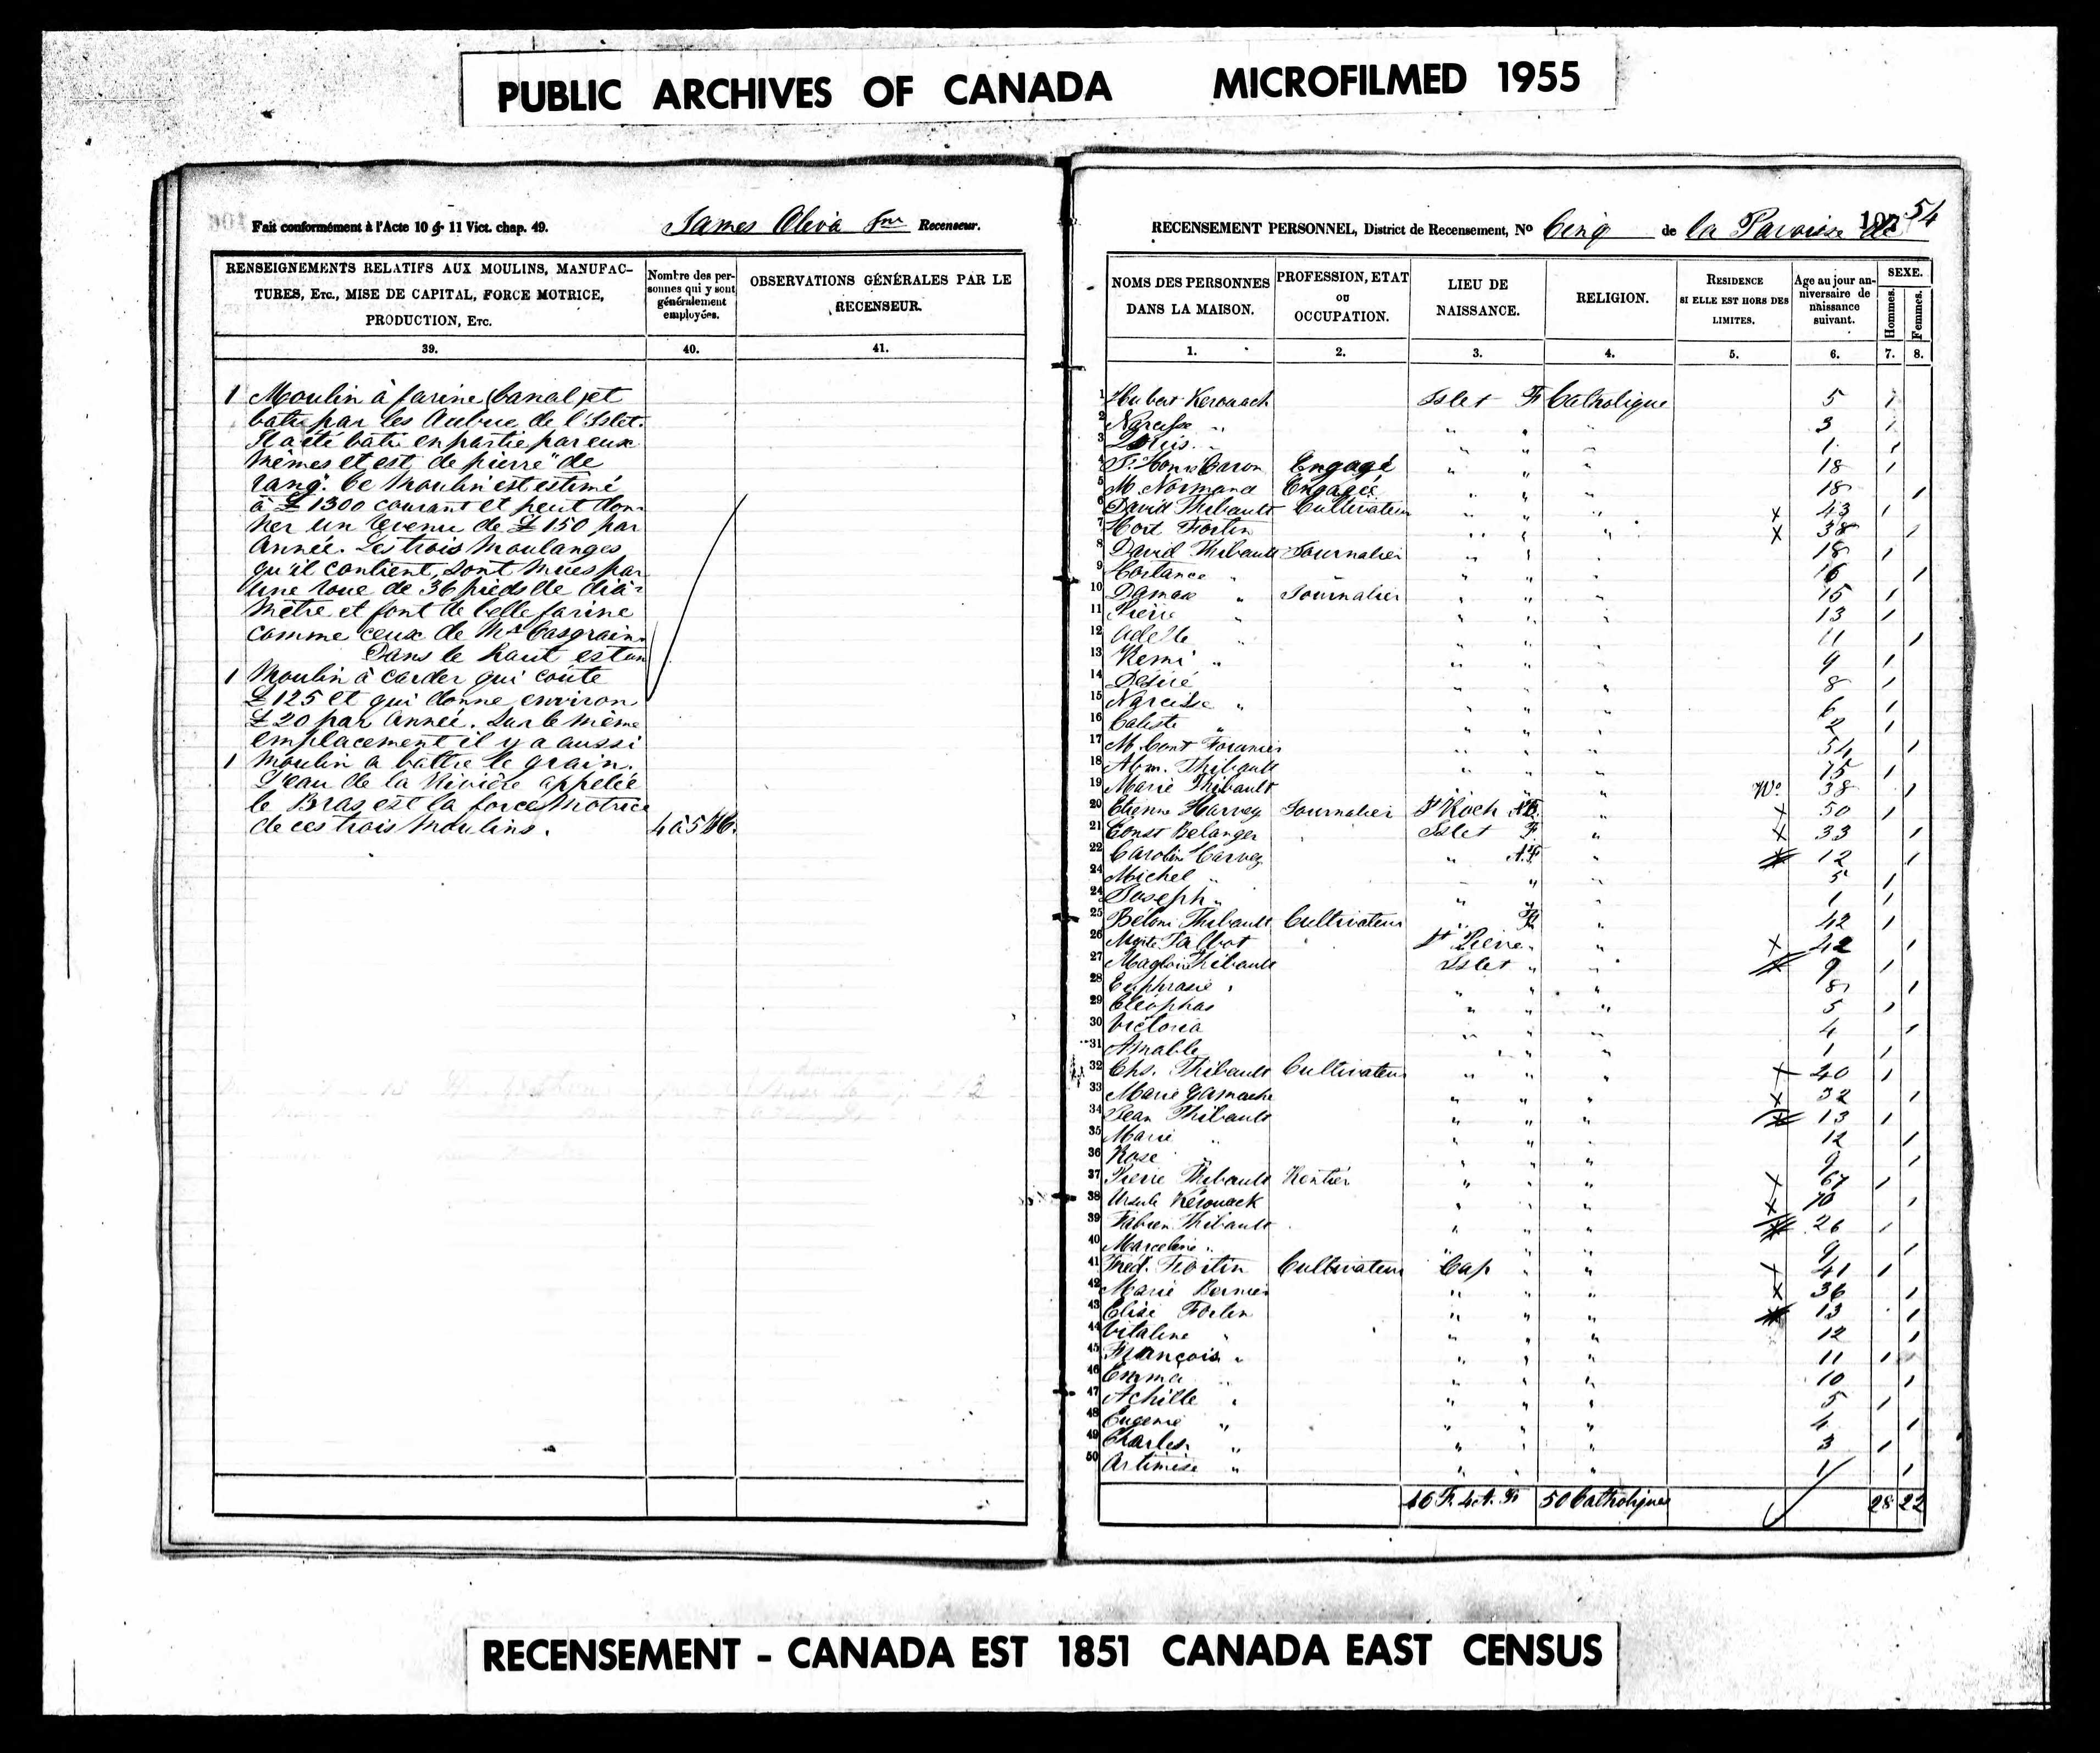 PUBLIC ARCHIVES OF CANADA MICROFILMED 1955
Fait conformément à l'Acte 10 & 11 Vict. chap. 49. James Oliva Recenseur.
RENSEIGNEMENTS RELATIFS AUX MOULINS, MANUFACTURES, Etc., MISE DE CAPITAL, FORCE MOTRICE, PRODUCTION, Etc.
Nombre des personnes qui y sont généralement employées.
OBSERVATIONS GÉNÉRALES PAR LE RECENSEUR.
39. 40. 41.
1 Moulin à farine (banal) et
bati par les Aubuc de l'Islet.
Il a été bâti en partie par eux
mêmes et est de pierre "de
rang". Ce Moulin est estimé
à £1300 courant et peut don-
ner un revenu de £150 par
Année. Les trois Moulanges
qu'il contient, sont mues par
une roue de 36 pieds de dia-
mètre et font de belle farine
comme ceux de Mr Casgrain.
Dans le haut est un
1 Moulin à carder qui coûte
£125 et qui donne environ
£20 par Année. Sur le même
emplacement il y a aussi
1 Moulin a battre le grain.
L'eau de la Rivière appelée
le Bras est la force Motrice
de ces trois Moulins. 4 à 5
RECENSEMENT PERSONNEL, District de Recensement, No Cinq de la Paroisse de 54
NOMS DES PERSONNES DANS LA MAISON.
PROFESSION, ETAT OU OCCUPATION.
LIEU DE NAISSANCE.
RELIGION.
RESIDENCE SI ELLE EST HORS DES LIMITES.
Age au jour anniversaire de naissance suivant.
SEXE.
Hommes. Femmes.
1. 2. 3. 4. 5. 6. 7. 8.
1 Hubert Kerouack Islet F Catholique 5 1
2 Narcisse " " " " 3 1
3 Louis " " " " 1 1
4 Caron Engagé " " " 18 1
5 M. Normand Engagée " " " 18 1
6 David Thibault Cultivateur " " " x 43 1
7 Hort Fortin " " " x 38 1
8 David Thibault Journalier " " " 18 1
9 Hortance " " " " 16 1
10 Damase " Journalier " " " 15 1
11 Pierre " " " " 13 1
12 Adelle " " " " 11 1
13 Remi " " " " 9 1
14 Désiré " " " 8 1
15 Narcisse " " " " 6 1
16 Caliste " " " " 2 1
17 M. Fournier " " " 54 1
18 Abm. Thibault " " " 75 1
19 Marie Thibault " " " 38 1
20 Etienne Harvey Journalier St Roch " x 50 1
21 Const Belanger Islet F " x 33 1
22 Caroline Harvey " A.F " x 12 1
24 Michel " " " " 5 1
24 Joseph " " " " 1 1
25 Béloni Thibault Cultivateur " F " 42 1
26 Talbot St Pierre " " x 42 1
27 Magloire Thibault Islet " " x 9 1
28 Euphrasie " " " " 8 1
29 Cléophas " " " 5 1
30 Victoria " " " 4 1
31 Amable " " " 1 1
32 Chs. Thibault Cultivateur " " " x 40 1
33 Marie Gamache " " " x 32 1
34 Jean Thibault " " " x 13 1
35 Marie " " " " 12 1
36 Rose " " " " 9 1
37 Pierre Thibault Rentier " " " x 67 1
38 Ursule Kérouack " " " x 70 1
39 Fabien Thibault " " " x 26 1
40 Marceline " " " " 9 1
41 Fred. Fortin Cultivateur Cap " " x 41 1
42 Marie Bernier " " " x 36 1
43 Elise Fortin " " " x 13 1
44 Vitaline " " " " 12 1
45 François " " " " 11 1
46 Emma " " " " 10 1
47 Achille " " " " 5 1
48 Eugenie " " " " 4 1
49 Charles " " " " 3 1
50 Artimise " " " " 1 1
46 F. 4 A. F 50 Catholiques 28 22
RECENSEMENT - CANADA EST 1851 CANADA EAST CENSUS